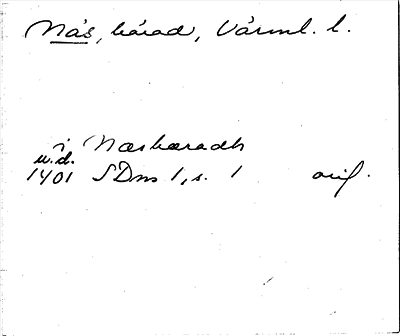 Näs, härad, Värml. l.
i Næshæradh
u.d.
1401 SDns 1, s. 1 orig.